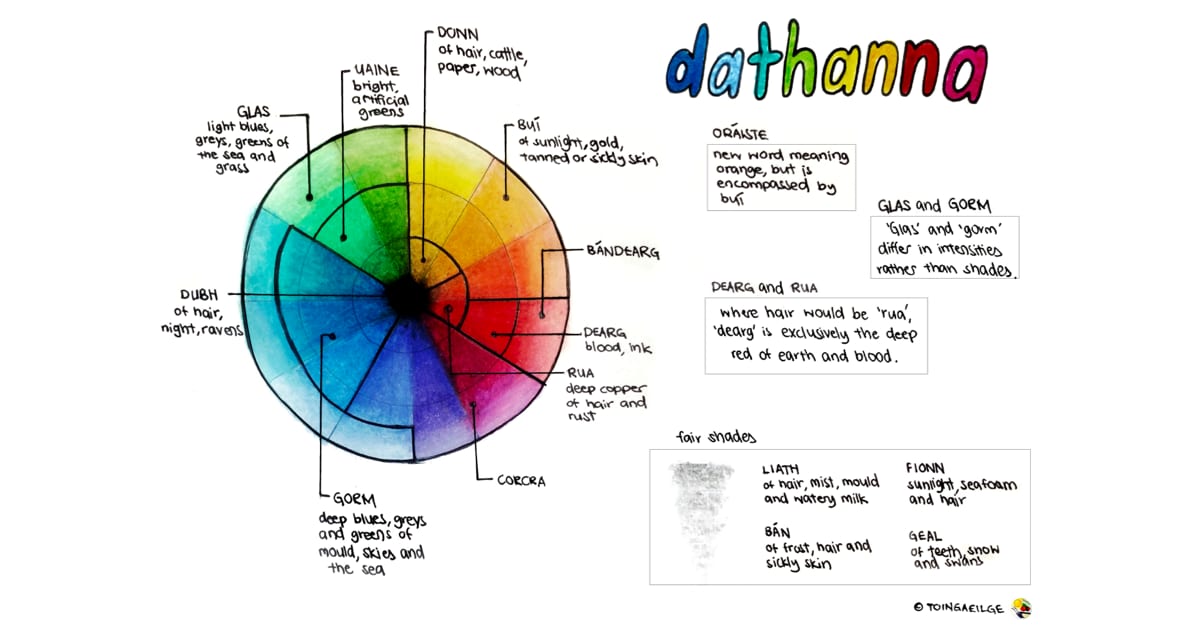 dathanna
DONN
of hair, cattle,
paper, wood
UAINE
bright,
artificial
greens
GLAS
light blues,
greys, greens of
the sea and
grass
BUÍ
of sunlight, gold,
tanned or sickly skin
BÁNDEARG
DUBH
of hair,
night, ravens
DEARG
blood, ink
RUA
deep copper
of hair and
rust
CORCRA
GORM
deep blues, greys
and greens of
mould, skies and
the sea
ORÁISTE
new word meaning
orange, but is
encompassed by
buí
GLAS and GORM
'Glas' and 'gorm'
differ in intensities
rather than shades.
DEARG and RUA
where hair would be 'rua',
'dearg' is exclusively the deep
red of earth and blood.
fair shades
LIATH
of hair, mist, mould
and watery milk
FIONN
sunlight, seafoam
and hair
BÁN
of frost, hair and
sickly skin
GEAL
of teeth, snow
and swans
© TOINGAEILGE